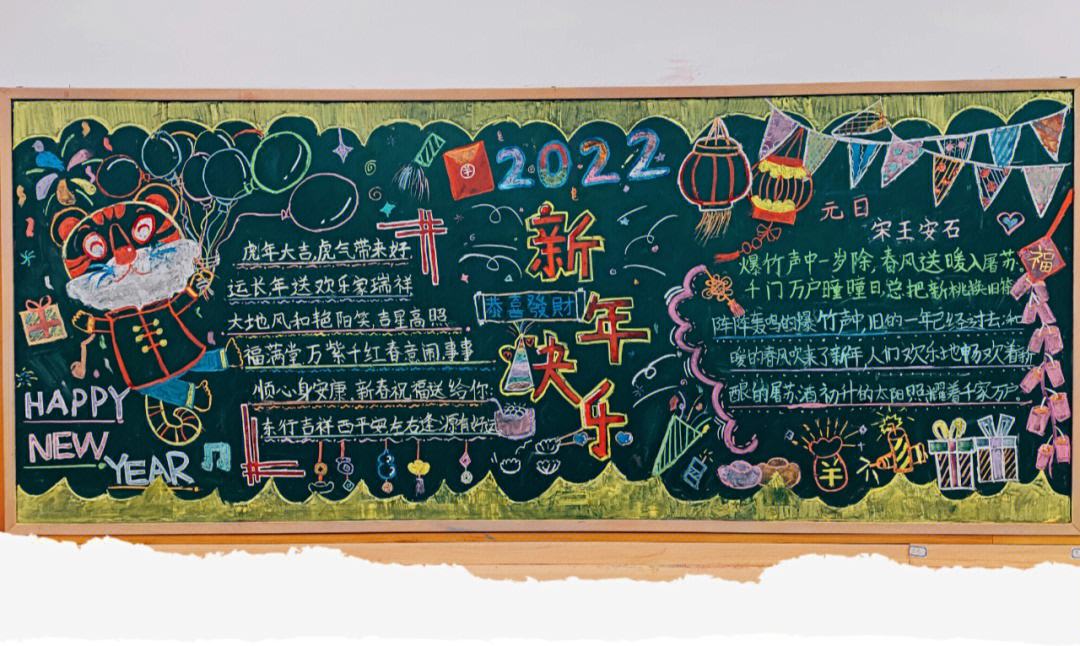 虎年大吉,虎气带来好
运长年送欢乐家瑞祥
大地风和艳阳笑,吉星高照
福满堂万紫千红春意闹,事事
顺心身安康,新春祝福送给你:
东行吉祥西平安左右逢源有好运
HAPPY
NEW
YEAR
2022
新
年
快
乐
恭喜發財
元日
宋王安石
爆竹声中一岁除,春风送暖入屠苏。
千门万户曈曈日,总把新桃换旧符
阵阵轰鸣的爆竹声中,旧的一年已经过去;和
暖的春风吹来了新年,人们欢乐地畅饮着新
酿的屠苏酒初升的太阳照耀着千家万户。
福